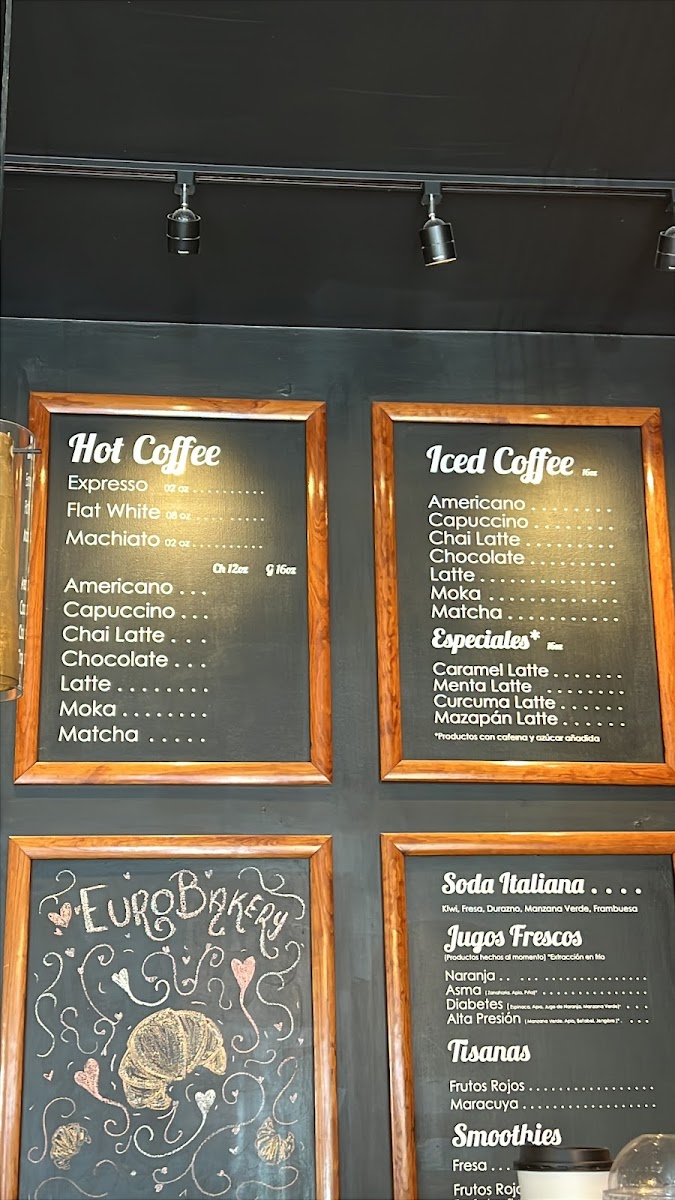 Hot Coffee
Expresso 02 oz . . . . . . . . . . .
Flat White 08 oz . . . . . . . . . . .
Machiato 02 oz . . . . . . . . . . .
Ch 12oz G 16oz
Americano . . .
Capuccino . . .
Chai Latte . . . .
Chocolate . . .
Latte . . . . . . . .
Moka . . . . . . . .
Matcha . . . . .
Iced Coffee 16oz
Americano . . . . . . . .
Capuccino . . . . . . . .
Chai Latte . . . . . . . .
Chocolate . . . . . . . .
Latte . . . . . . . . . . . . .
Moka . . . . . . . . . . . .
Matcha . . . . . . . . . .
Especiales* 16oz
Caramel Latte . . . . . . .
Menta Latte . . . . . . . .
Curcuma Latte . . . . . .
Mazapán Latte . . . . . .
*Productos con cafeína y azúcar añadida
EUROBAKERY
Soda Italiana . . . .
Kiwi, Fresa, Durazno, Manzana Verde, Frambuesa
Jugos Frescos
(Productos hechos al momento) *Extracción en fría
Naranja . . . . . . . . . . . . . . . . . . .
Asma (Zanahoria, Apio, Piña)* . . . . . . . . . . . . . .
Diabetes ( Espinaca, Apio, Jugo de Naranja, Manzana Verde)* . . .
Alta Presión ( Manzana Verde, Apio, Betabel, Jengibre )* . . . .
Tisanas
Frutos Rojos . . . . . . . . . . . . . . . . .
Maracuya . . . . . . . . . . . . . . . . . .
Smoothies
Fresa . . .
Frutos